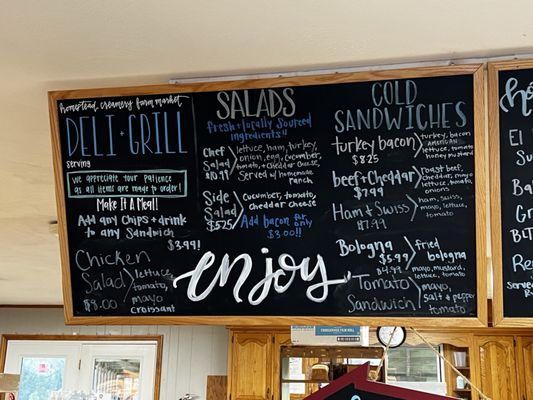 homestead creamery farm market
DELI + GRILL
Serving
we appreciate your patience
as all items are made to order!
Make It A Meal!
Add any Chips + drink
to any Sandwich
$3.99!
Chicken
Salad
$8.00
lettuce
tomato
mayo
Croissant
SALADS
fresh + locally sourced
ingredients!!
Chef
Salad
lettuce, ham, turkey,
onion, egg, cucumber,
tomato, + cheddar cheese,
Served w/ homemade
ranch
Side
Salad
$5.25
cucumber, tomato,
cheddar cheese
Add bacon for
only
$3.00!!
enjoy
COLD
SANDWICHES
turkey bacon
$8.25
turkey, bacon
american
lettuce, tomato
honey mustard
beef + cheddar
$7.99
roast beef,
cheddar, mayo
lettuce, tomato,
onions
Ham + Swiss
$7.99
ham, swiss,
mayo, lettuce,
tomato
Bologna
$5.99
fried
bologna
mayo, mustard,
lettuce, tomato
Tomato
Sandwich
$4.99
mayo,
salt + pepper
tomato